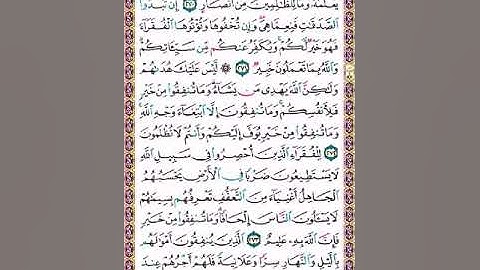 يَعْلَمُهُۥ ۗ وَمَا لِلظَّٰلِمِينَ مِنْ أَنصَارٍ ﴿٢٧٠﴾ إِن تُبْدُوا۟
ٱلصَّدَقَٰتِ فَنِعِمَّا هِىَ ۖ وَإِن تُخْفُوهَا وَتُؤْتُوهَا ٱلْفُقَرَآءَ
فَهُوَ خَيْرٌ لَّكُمْ ۚ وَيُكَفِّرُ عَنكُم مِّن سَيِّـَٔاتِكُمْ ۗ
وَٱللَّهُ بِمَا تَعْمَلُونَ خَبِيرٌ ﴿٢٧١﴾ ۞ لَّيْسَ عَلَيْكَ هُدَىٰهُمْ
وَلَٰكِنَّ ٱللَّهَ يَهْدِى مَن يَشَآءُ ۗ وَمَا تُنفِقُوا۟ مِنْ خَيْرٍ
فَلِأَنفُسِكُمْ ۚ وَمَا تُنفِقُونَ إِلَّا ٱبْتِغَآءَ وَجْهِ ٱللَّهِ ۚ
وَمَا تُنفِقُوا۟ مِنْ خَيْرٍ يُوَفَّ إِلَيْكُمْ وَأَنتُمْ لَا تُظْلَمُونَ
﴿٢٧٢﴾ لِلْفُقَرَآءِ ٱلَّذِينَ أُحْصِرُوا۟ فِى سَبِيلِ ٱللَّهِ
لَا يَسْتَطِيعُونَ ضَرْبًا فِى ٱلْأَرْضِ يَحْسَبُهُمُ
ٱلْجَاهِلُ أَغْنِيَآءَ مِنَ ٱلتَّعَفُّفِ تَعْرِفُهُم بِسِيمَٰهُمْ
لَا يَسْـَٔلُونَ ٱلنَّاسَ إِلْحَافًا ۗ وَمَا تُنفِقُوا۟ مِنْ خَيْرٍ
فَإِنَّ ٱللَّهَ بِهِۦ عَلِيمٌ ﴿٢٧٣﴾ ٱلَّذِينَ يُنفِقُونَ أَمْوَٰلَهُم
بِٱلَّيْلِ وَٱلنَّهَارِ سِرًّا وَعَلَانِيَةً فَلَهُمْ أَجْرُهُمْ عِندَ